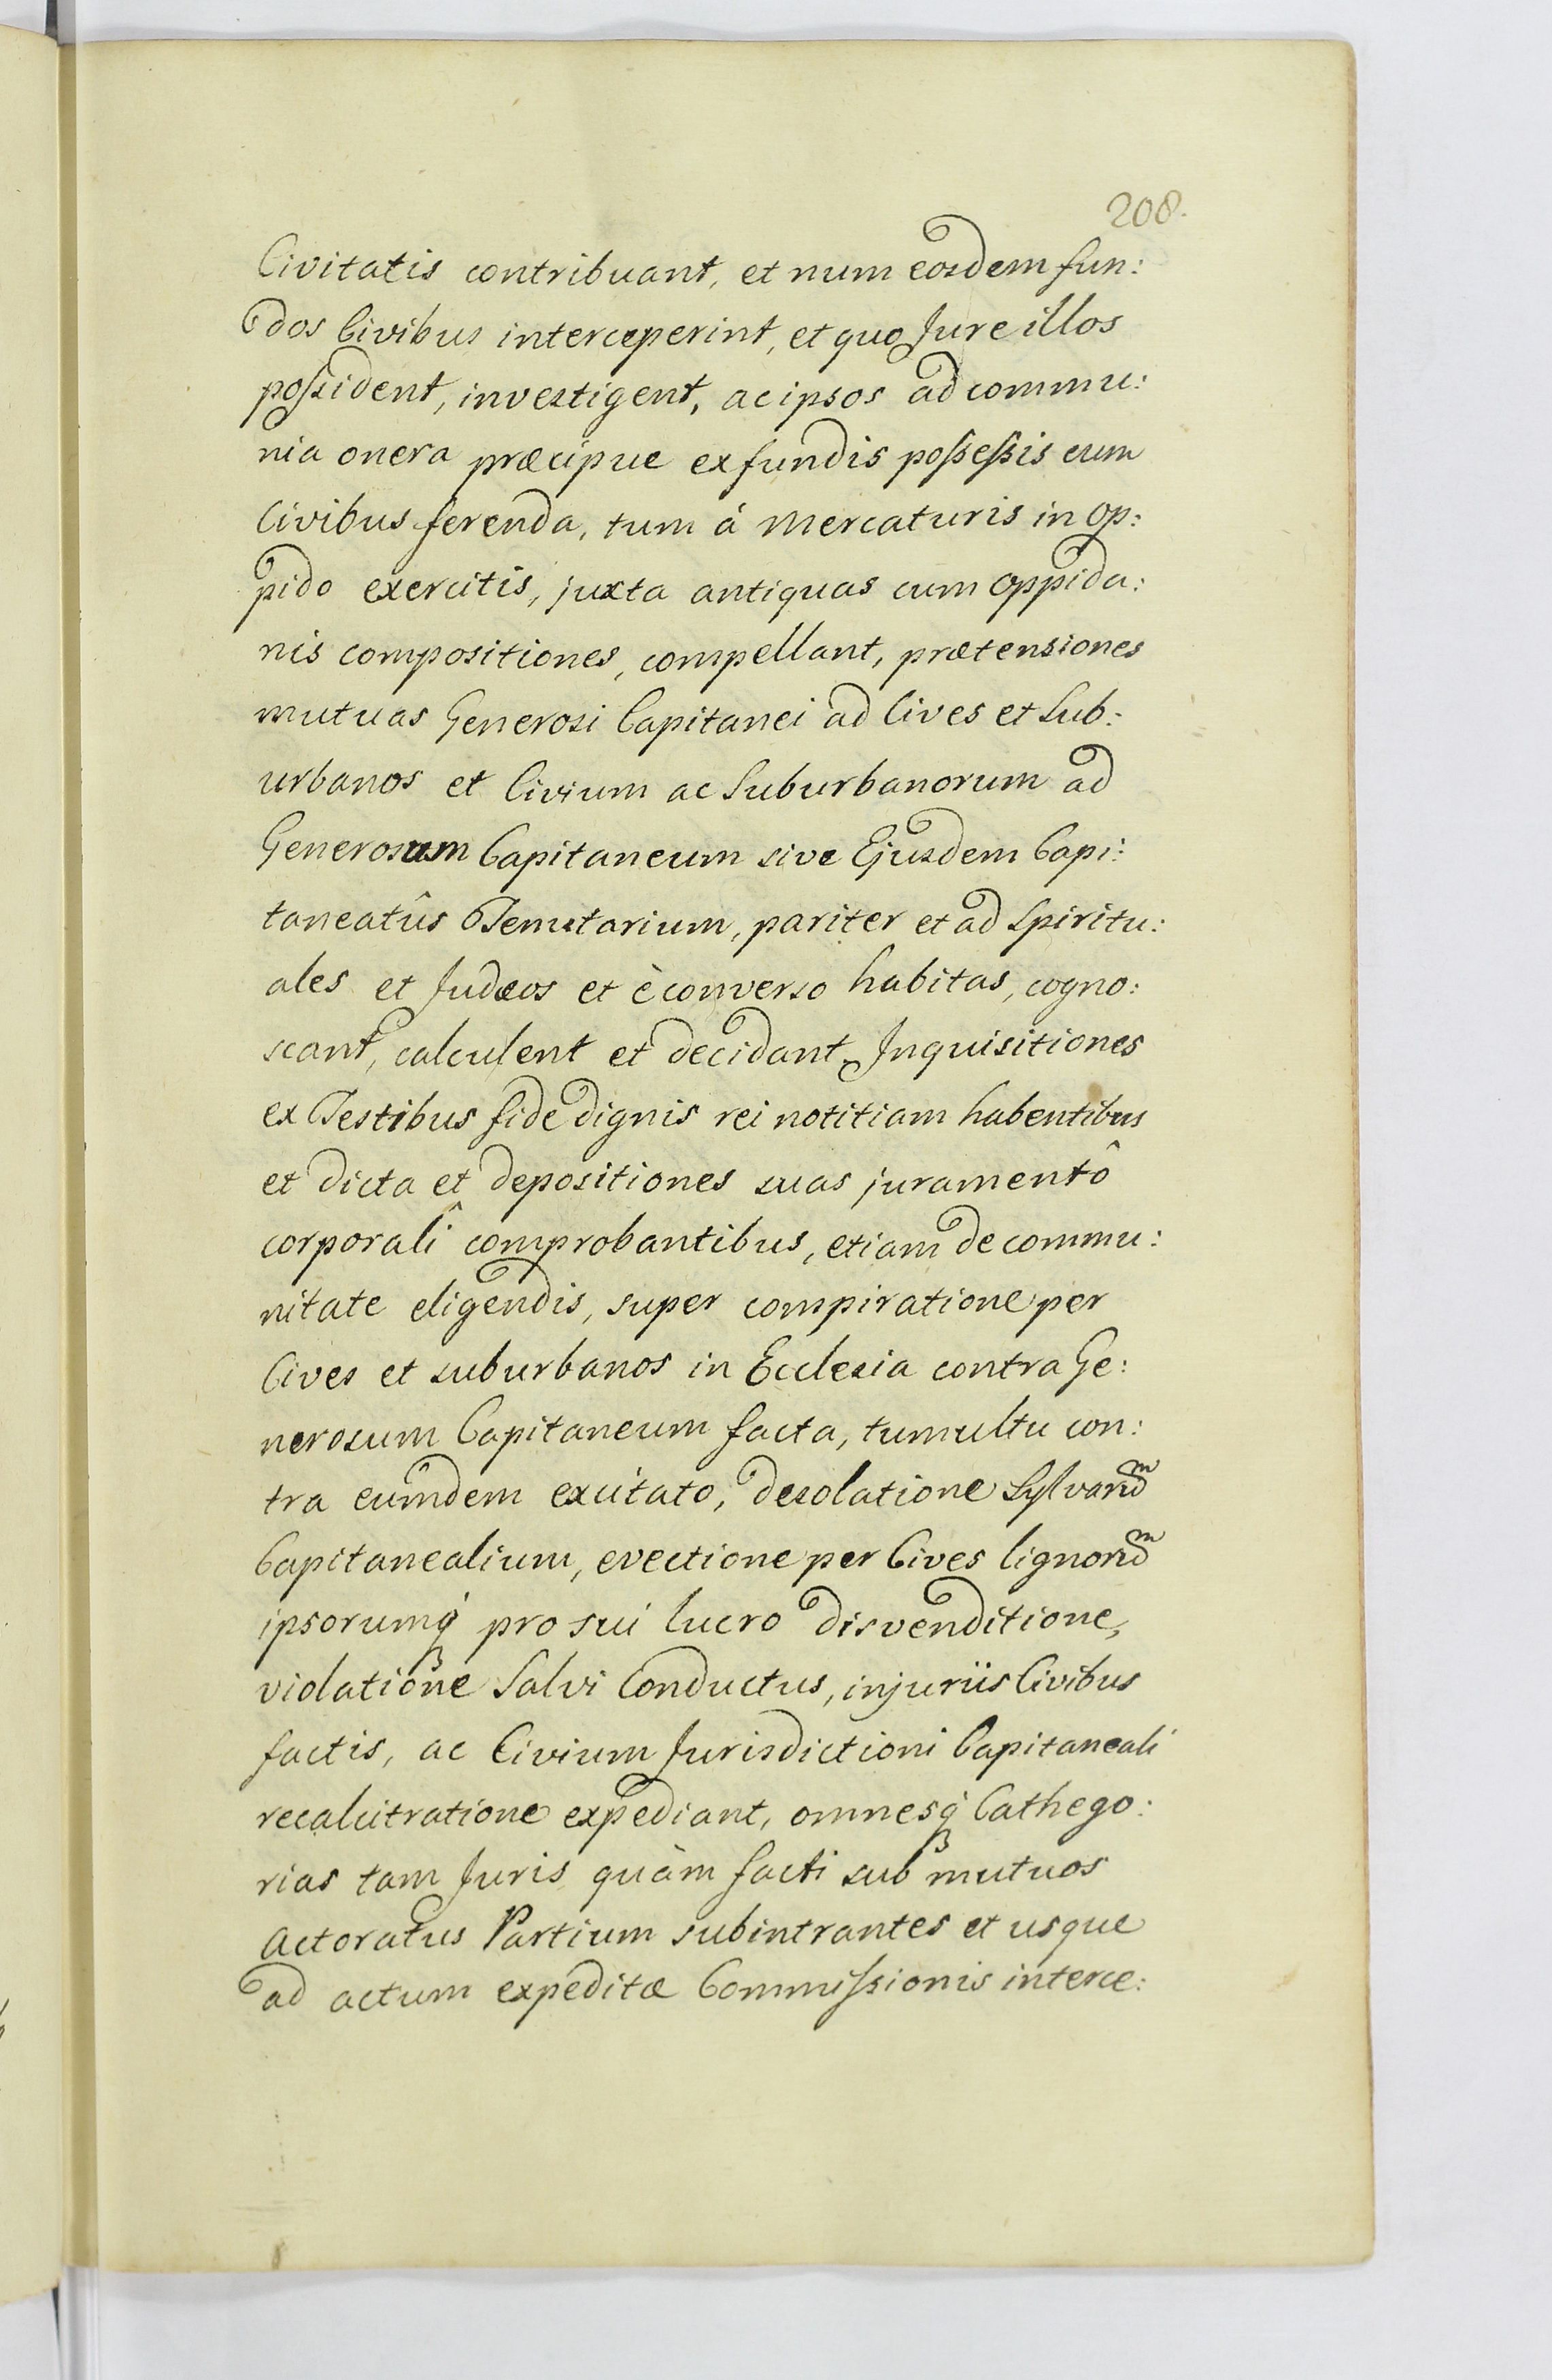 208.
Civitatis contribuant, et num eosdem fun:
dos Civibus interceperint, et quo Jure illos
possident, investigent, ac ipsos ad commu:
nia onera præcipue ex fundis possessis cum
Civibus ferenda, tum á Mercaturis in Op:
pido exercitis, juxta antiquas cum Oppida:
nis compositiones, compellant, prætensiones
mutuas Generosi Capitanei ad Cives et Sub:
urbanos et Civium ac Suburbanorum ad
Generosum Capitaneum sive Ejusdem Capi:
taneatûs Tenutarium, pariter et ad Spiritu:
ales et Judæos et è converso habitas, cogno:
scant, calculent et decidant, Inquisitiones
ex Testibus fide dignis rei notitiam habentibus
et dicta et depositiones suas juramentô
corporalî comprobantibus, etiam de commu:
nitate eligendis, super compiratione per
Cives et suburbanos in Ecclesia contra Ge:
nerosum Capitaneum facta, tumultu con:
tra eumdem excitato, desolatione Sylvarũm
Capitanealium, evectione per Cives lignorũm
ipsorumq́ pro sui lucro disvenditione,
violatione Salvi Conductus, injuriis Civibus
factis, ac Civium Jurisdictioni Capitaneali
recalcitratione expediant, omnesq́ Cathego:
rias tam Juris quàm facti sub mutuos
Actoratus Partium subintrantes et usque
ad actum expeditæ Commissionis interce: